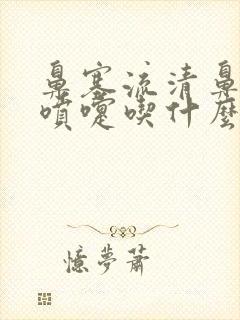 鼻塞流清鼻
噴嚏喫什麼
憶夢蕭